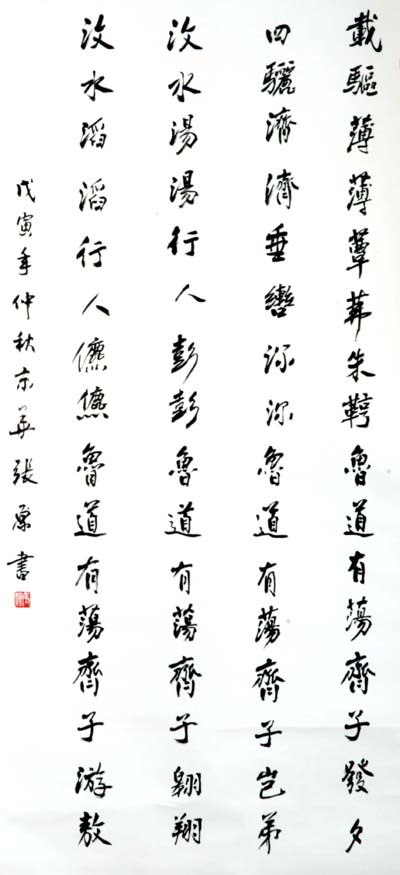 載驅薄薄簟茀朱鞹魯道有蕩齊子發夕
四驪濟濟垂轡濔濔魯道有蕩齊子豈弟
汶水湯湯行人彭彭魯道有蕩齊子翱翔
汶水滔滔行人儦儦魯道有蕩齊子游敖
戊寅年仲秋京華張原書